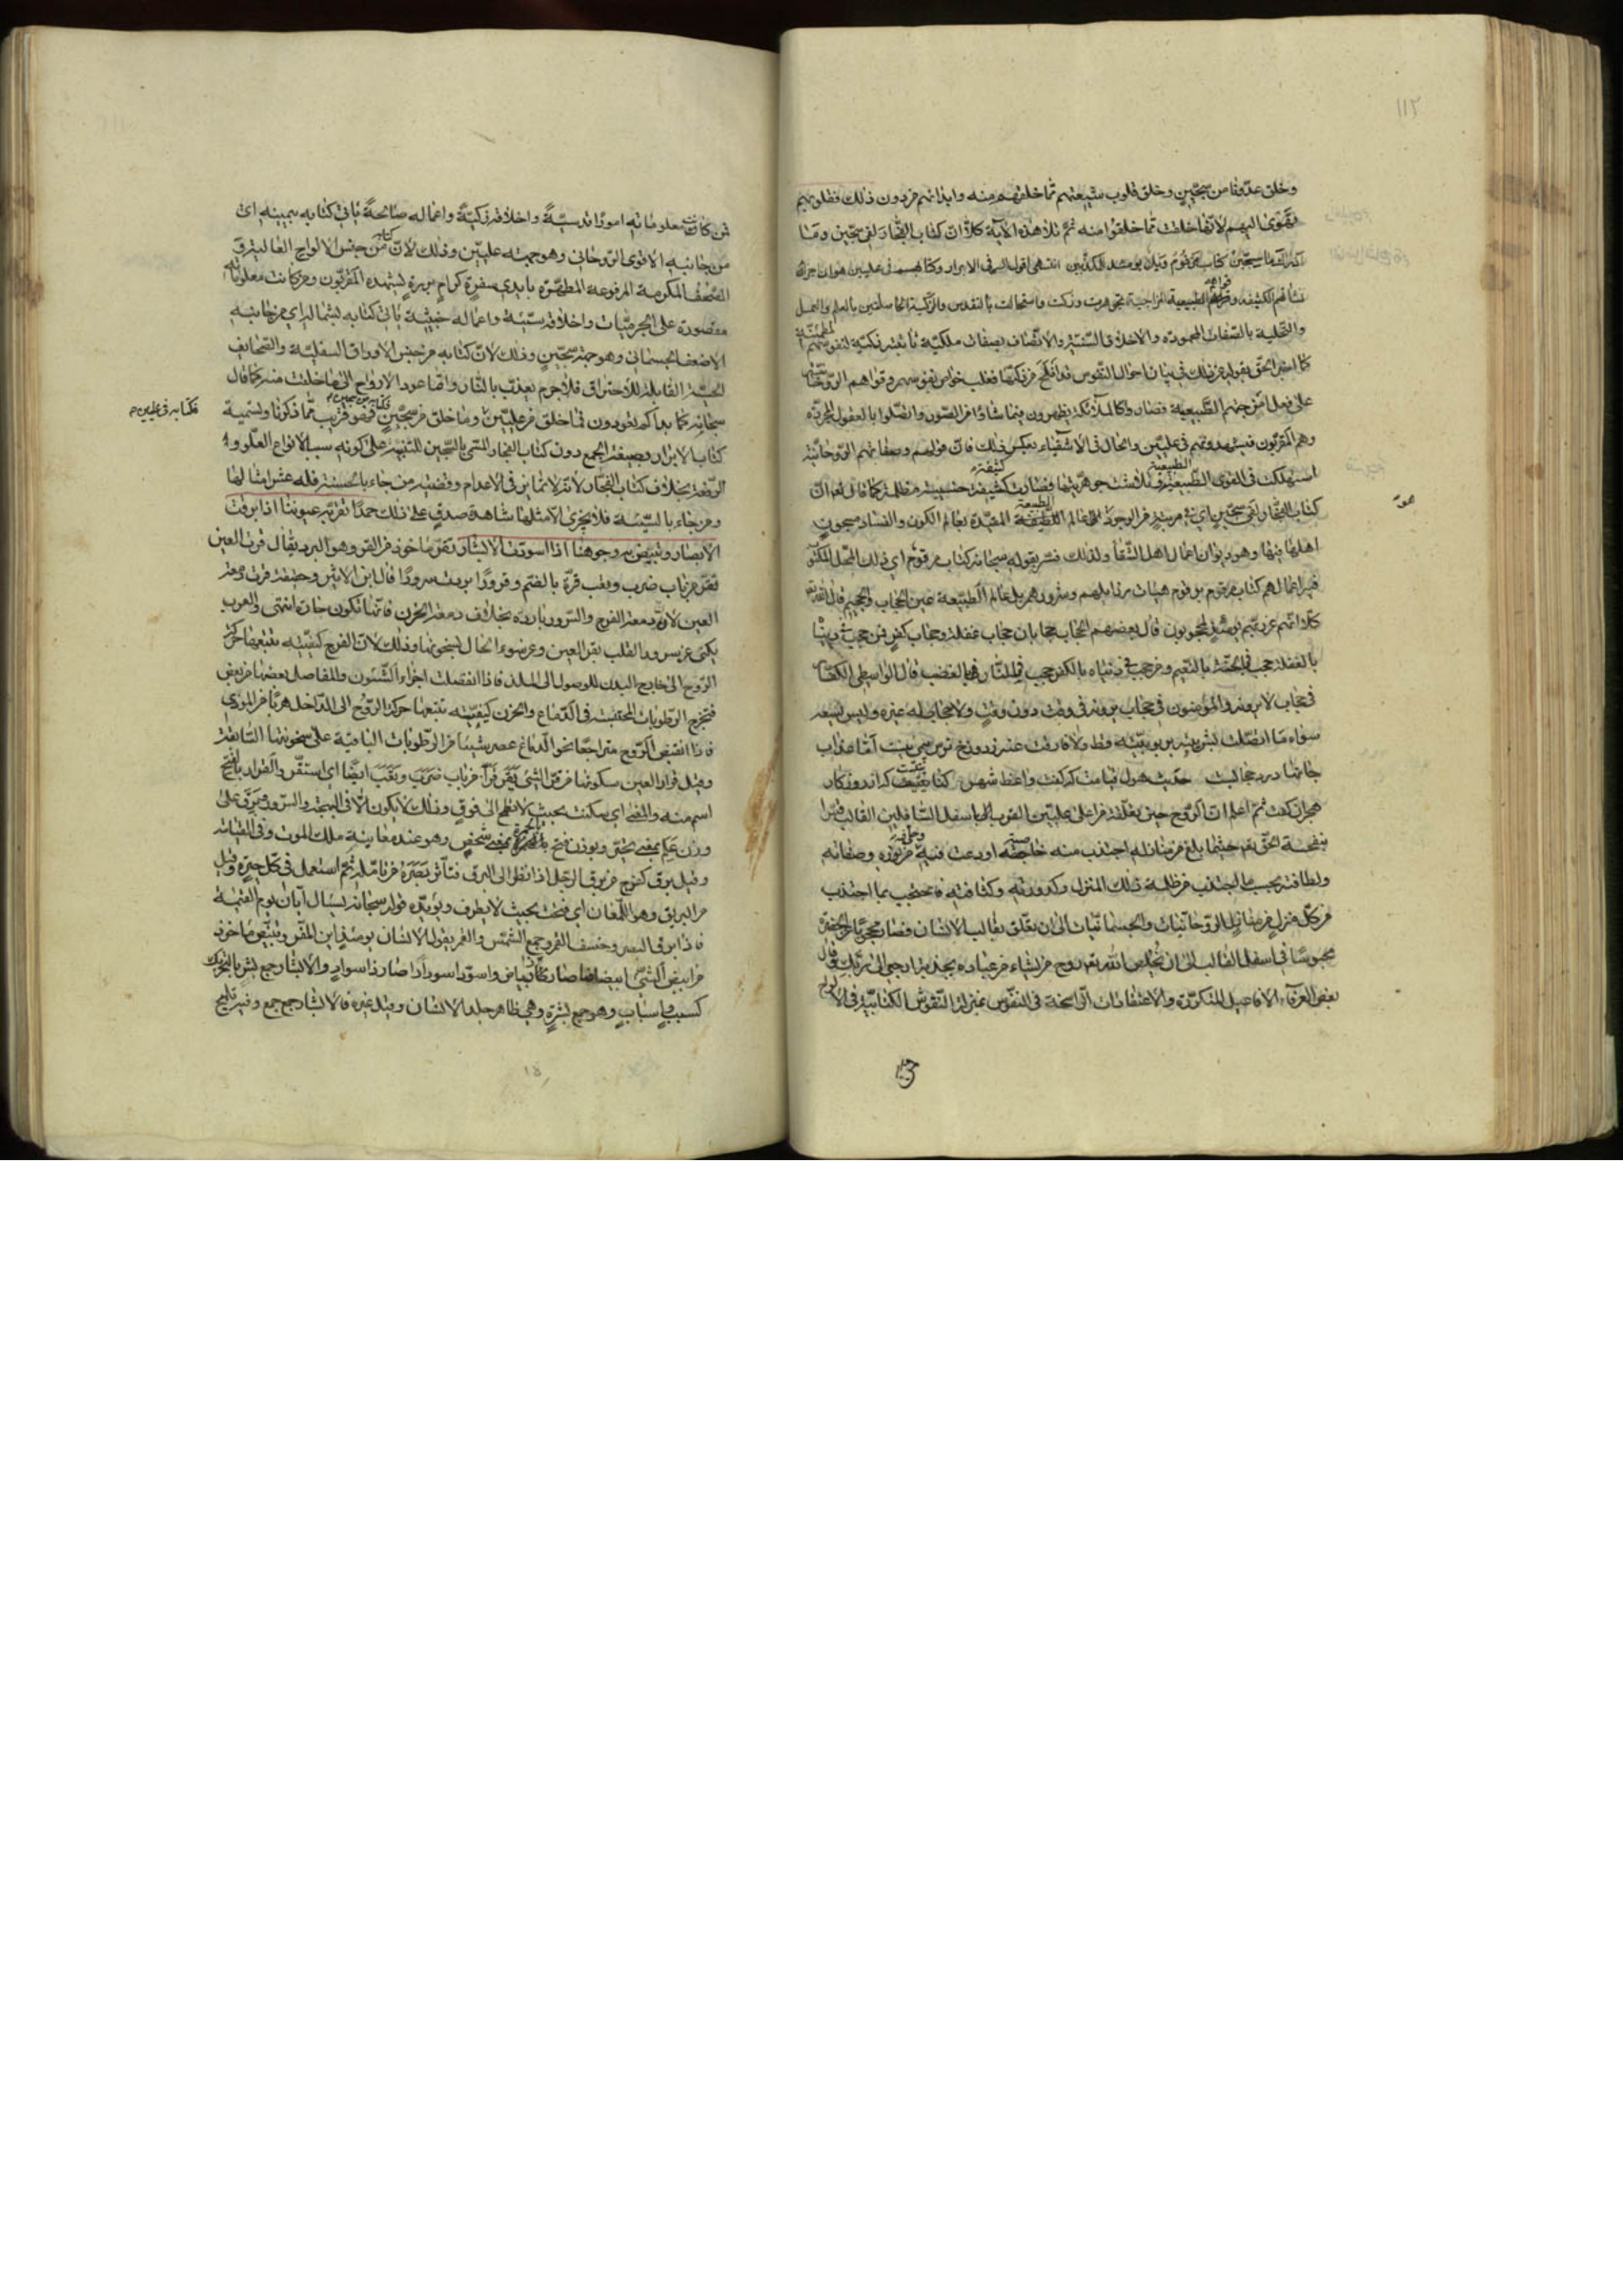 ١١٢
وخلق عدونا من سجين وخلق قلوب شيعتهم مما خلقهم منه وابدانهم من دون ذلك فقلوبهم
تهوى اليهم لانها خلقت مما خلقوا منه ثم تلا هذه الآية كلا ان كتاب الفجار لفي سجين وما
ادريك ما سجين كتاب مرقوم ويل يومئذ للمكذبين انتهى اقول السر في الابرار وكتابهم في عليين هو ان اجزاء
نشأتهم الكثيفة وقواهم الطبيعية المزاجية تجوهرت وزكت واستحالت بالتقديس والتزكية الحاصلتين بالعلم والعمل
والتحلية بالصفات المحمودة والاخلاق السنية والاتصاف بصفات ملكية نابتة زكية لنفوسهم المطمئنة
كما اخبر الحق بقوله عن ذلك في بيان احوال النفوس قد افلح من زكيها فغلب خواص نفوسهم وقواهم الروحانية
على قواهم الطبيعية فصاروا كالملائكة يظهرون فيما شاؤا من الصور واتصلوا بالعقول المجردة
وهم المقربون فيشهدونهم في عليين والحال في الاشقياء بعكس ذلك فان قواهم وصفاتهم الروحانية
استهلكت في القوى الطبيعية وتلاشت جوهريتها فصارت كثيفة خسيسة مظلمة كما قال تعالى ان
كتاب الفجار لفي سجين اي في مرتبة من الوجود في عالم الطبيعة المقيدة بعالم الكون والفساد مسجون
اهلها فيها وهو ديوان اعمال اهل الشقا ولذلك فسر بقوله سبحانه كتاب مرقوم اي ذلك المحل المكتوب
فيه اعمالهم كتاب مرقوم برقوم هيئات رذايلهم وشرورهم بل عالم الطبيعة عين الحجاب والجحيم قال الله تعالى
كلا انهم عن ربهم يومئذ لمحجوبون قال بعضهم الحجاب حجابان حجاب غفلة وحجاب كفر فمن حجب في دنياه
بالغفلة حجب في الجنة بالنعيم ومن حجب في دنياه بالكفر حجب في النار بالغضب قال الواسطي الكفار
في حجاب لا يرونه والمؤمنون في حجاب يرونه في وقت دون وقت ولا حجاب له غيره وليس يسعه
سواه ما اتصلت بشرية بربوبيته قط ولا فارقت عنه
جانها در حديث هول قيامت كه گفت واعظ شهر كنايتيست كه از روزگار
هجران گفت ثم اعلم ان الروح حين تعلقه من اعلى عليين القرب الى اسفل السافلين القالب
بنفحة الحق تعالى حيثما بلغ من منازله اجتذب منه خاصيته اودعت فيه
ولطافته بحسب ما اجتذب من ظلمة ذلك المنزل وكدورته وكثافته فاحتجب بما اجتذب
من كل منزل من منازل الروحانيات والجسمانيات الى ان تعلق بقالب الانسان فصار محجوبا عن الحضرة
محبوسا في اسفل القالب الى ان يخلص الله تعالى روح من يشاء من عباده بجذبة ارجعي الى ربك وقال
بعض العرفاء الافاعيل المتكررة والاعتقادات الراسخة في النفوس بمنزلة النقوش الكتابية في الالواح
فمن كانت معلوماته امورا قدسية واخلاقه زكية واعماله صالحة ياتي كتابه بيمينه اي
من جانبه الاقوى الروحاني وهو جهة عليين وذلك لان كتابه من جنس الالواح العالية و
الصحف المكرمة المرفوعة المطهرة بايدي سفرة كرام بررة يشهده المقربون ومن كانت معلوماته
مقصورة على الجرميات واخلاقه سيئة واعماله خبيثة ياتي كتابه بشماله اي من جانبه
الاضعف الجسماني وهو جهة سجين وذلك لان كتابه من جنس الاوراق السفلية والصحائف
الحسية القابلة للاحتراق فلا جرم يعذب بالنار وانما عود الارواح الى ما خلقت منه كما قال
سبحانه كما بدأكم تعودون فما خلق من عليين فكتابه في عليين وما خلق من سجين فكتابه في سجين فهو قريب مما ذكرنا وتسمية
كتاب الابرار بصيغة الجمع دون كتاب الفجار المسمى بالسجين للتنبيه على كونه سبب الانواع العلو و
الرفعة بخلاف كتاب الفجار لانه لا تمايز في الاعدام وقضية من جاء بالحسنة فله عشر امثالها
ومن جاء بالسيئة فلا يجزى الا مثلها شاهدة صدق على ذلك حمدا تقر به عيوننا اذا برقت
الابصار وتبيض به وجوهنا اذا اسودت الابشار تقر ماخوذ من القر وهو البرد يقال قرت العين
تقر من باب ضرب وتعب قرة بالضم وقرورا بردت سرورا قال ابن الاثير وحقيقته بردت دمعة
العين لان دمعة الفرح والسرور باردة بخلاف دمعة الحزن فانها تكون حارة انتهى والعرب
يكنى عن سرور القلب بقر العين وعن سوء الحال بسخونتها وذلك لان الفرح كيفية تتبعها حركة
الروح الى خارج البدن للوصول الى الملذ فاذا انفصلت اجزاء الشئون والمفاصل بعضها من بعض
فتخرج الرطوبات المحتقنة في الدماغ والحزن كيفية تتبعها حركة الروح الى الداخل هربا من الموذي
فاذا انقبض الروح متراجعا نحو الدماغ عصر شيئا من الرطوبات الباقية على سخونتها السابقة
وقيل قرار العين سكونها من قر الشئ يقر قرا من باب ضرب وتعب ايضا اي استقر والقرار بالفتح
اسم منه والمعنى اي سكنت بحيث لا تطمح الى فوق وذلك لا يكون الا في البهجة والسرور وبرق على
وزن علم بمعنى تحير وبوزن فتح بمعنى شخص وهو عند معاينة ملك الموت وفي القيامة
وقيل برق كفرح من برق الرجل اذا نظر الى البرق فتأثر بصره من تأمله ثم استعمل في كل حيرة وقيل
من البريق وهو اللمعان اي فتحت بحيث لا يطرف ويؤيده قوله سبحانه يسئل ايان يوم القيمة
فاذا برق البصر وخسف القمر وجمع الشمس والقمر يقول الانسان يومئذ اين المفر وتبيض ماخوذ
من ابيض الشئ ابيضاضا صار ذا بياض واسود اسودادا صار ذا سواد والابشار جمع بشر بالتحريك
كسبب واسباب وهو جمع بشرة وهي ظاهر جلد الانسان وقيل غيره فالابشار جمع جمع وفيه تلميح
فكتابه في عليين م